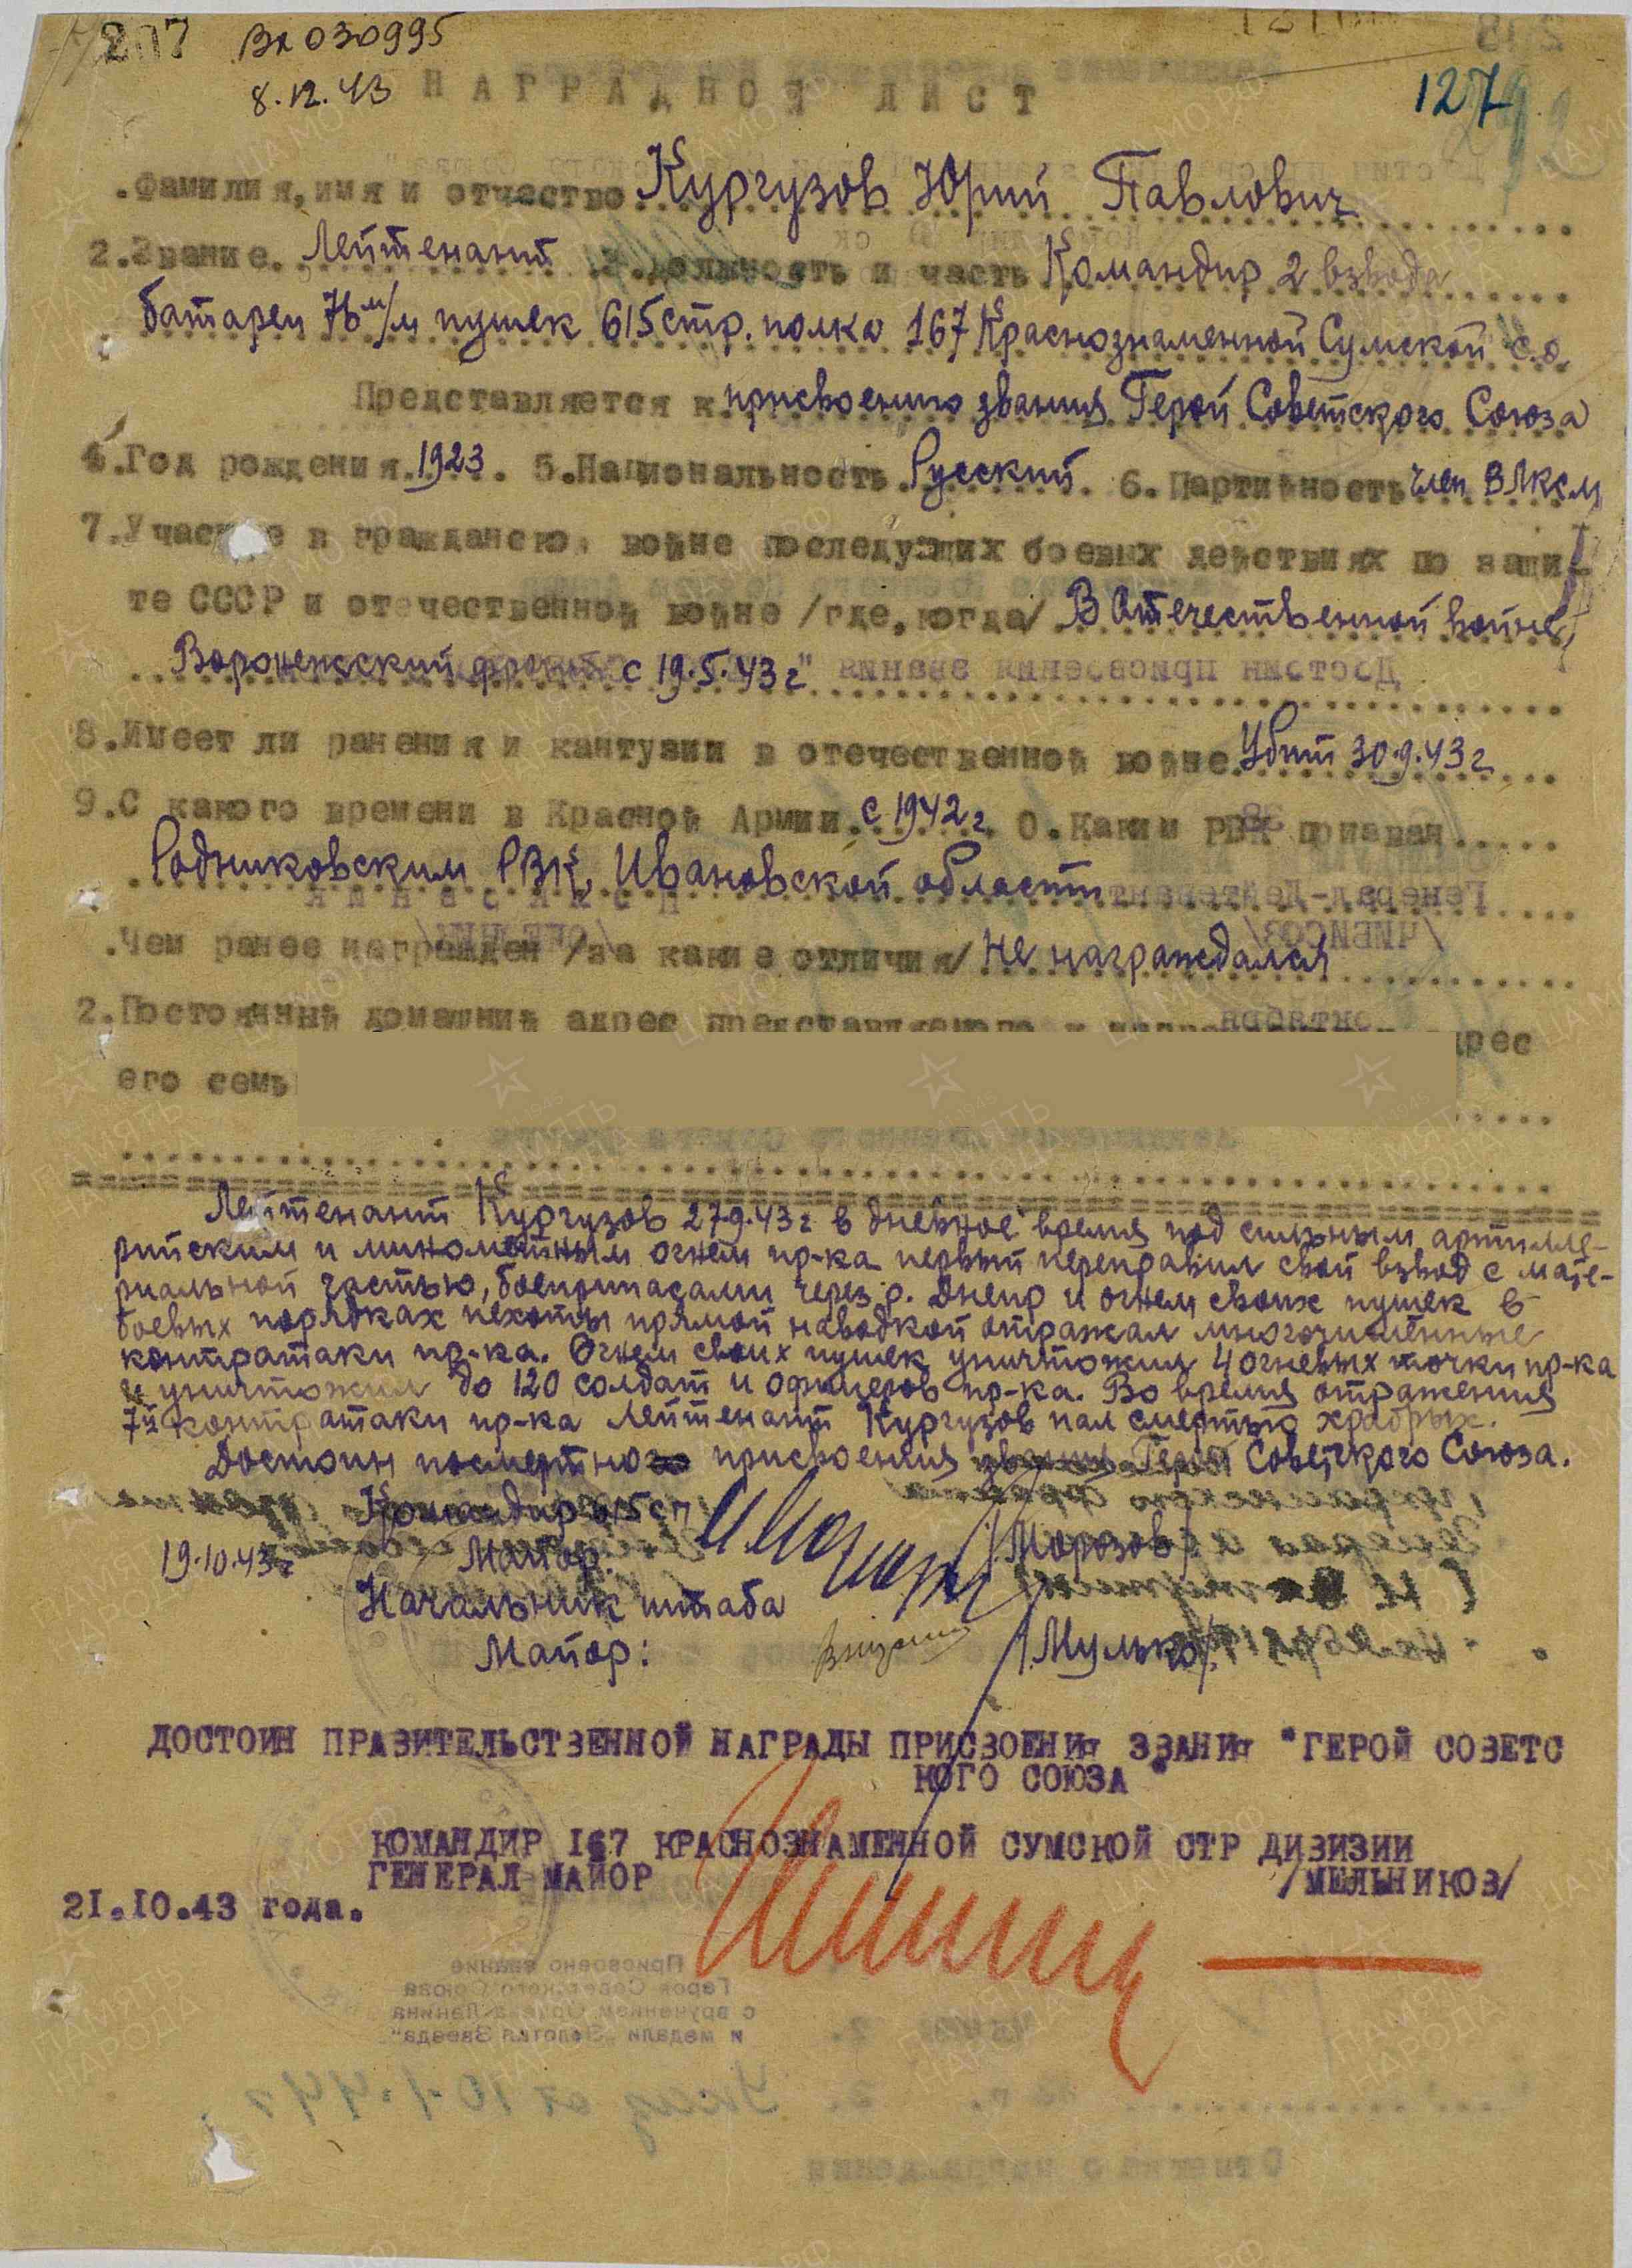 207 Вх 030995
8.12.43 НАГРАДНОЙ ЛИСТ
127
.Фамилия, имя и отчество Кургузов Юрий Павлович
2.Звание Лейтенант 3.Должность и часть Командир 2 взвода
батареи 76 м/м пушек 615 стр. полка 167 Краснознаменной Сумской с.д.
Представляется к присвоению звания Герой Советского Союза
4.Год рождения 1923. 5.Национальность Русский. 6.Партийность член ВЛКСМ
7.Участие в гражданской войне последующих боевых действиях по защи-
те СССР и отечественной войне /где, когда/ В Отечественной войне,
Воронежский фронт с 19.5.43г
8.Имеет ли ранения и кантузии в отечественной войне Убит 30.9.43г
9.С какого времени в Красной Армии с 1942г 0.Каким РВК призван
Родниковским РВК, Ивановской области
.Чем ранее награжден /за какие отличия/ Не награждался
2.Постоянный домашний адрес представляемого к адрес
его семь
Лейтенант Кургузов 27.9.43г в дневное время под сильным артилле-
рийским и минометным огнем пр-ка первый переправил свой взвод с мате-
риальной частью, боеприпасами через р. Днепр и огнем своих пушек в
боевых порядках пехоты прямой наводкой отражал многочисленные
контратаки пр-ка. Огнем своих пушек уничтожил 4 огневых точки пр-ка
и уничтожил до 120 солдат и офицеров пр-ка. Во время отражения
7й контратаки пр-ка Лейтенант Кургузов пал смертью храбрых.
Достоин посмертного присвоения звания Герой Советского Союза.
Командир 615 сп
19.10.43г Майор: /Морозов/
Начальник штаба
Майор: /Мулько/
ДОСТОИН ПРАВИТЕЛЬСТВЕННОЙ НАГРАДЫ ПРИСВОЕНИЯ ЗВАНИЯ "ГЕРОЙ СОВЕТС
КОГО СОЮЗА"
КОМАНДИР 167 КРАСНОЗНАМЕННОЙ СУМСКОЙ СТР ДИВИЗИИ
ГЕНЕРАЛ-МАЙОР /МЕЛЬНИКОВ/
21.10.43 года.